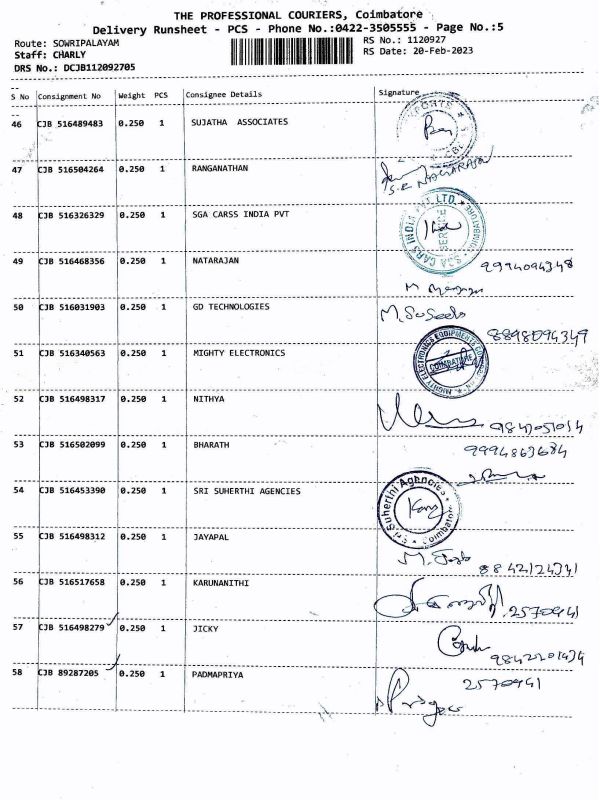 THE PROFESSIONAL COURIERS, Coimbatore
Delivery Runsheet - PCS - Phone No.:0422-3505555 - Page No.:5
Route: SOWRIPALAYAM RS No.: 1120927
Staff: CHARLY RS Date: 20-Feb-2023
DRS No.: DCJB112092705
S No Consignment No Weight PCS Consignee Details Signature
46 CJB 516489483 0.250 1 SUJATHA ASSOCIATES
47 CJB 516504264 0.250 1 RANGANATHAN
48 CJB 516326329 0.250 1 SGA CARSS INDIA PVT
49 CJB 516468356 0.250 1 NATARAJAN 9994094348
50 CJB 516031903 0.250 1 GD TECHNOLOGIES M.Suseela
8898094349
51 CJB 516340563 0.250 1 MIGHTY ELECTRONICS MIGHTY ELECTRONICS EQUIPMENTS COIMBATORE
52 CJB 516498317 0.250 1 NITHYA
53 CJB 516502099 0.250 1 BHARATH 9994863684
54 CJB 516453390 0.250 1 SRI SUHERTHI AGENCIES Sri Suherthi Agencies Coimbatore
55 CJB 516498312 0.250 1 JAYAPAL
8842124341
56 CJB 516517658 0.250 1 KARUNANITHI 2570941
57 CJB 516498279 0.250 1 JICKY
58 CJB 89287205 0.250 1 PADMAPRIYA 2570941